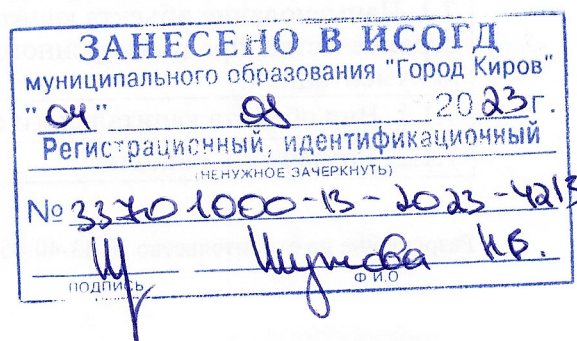 ЗАНЕСЕНО В ИСОГД
муниципального образования "Город Киров"
"04" 08 2023г.
Регистрационный, идентификационный
(НЕНУЖНОЕ ЗАЧЕРКНУТЬ)
№ 33701000-13-2023-4213
ПОДПИСЬ Ф.И.О